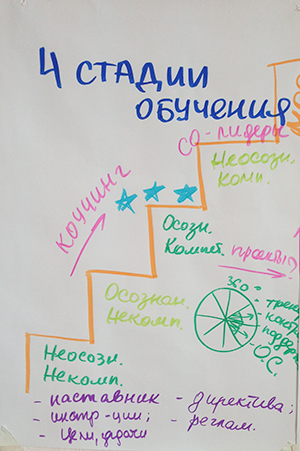 4 СТАДИИ
ОБУЧЕНИЯ
СО-лидеры
Неосозн.
Комп.
КОУЧИНГ
Осозн.
Компет.
проекты
Осознан.
Некомп.
360°
О.С.
Неосозн.
Некомп.
- наставник
- инстр-ции;
- цели, задачи
- директива;
- реглам.